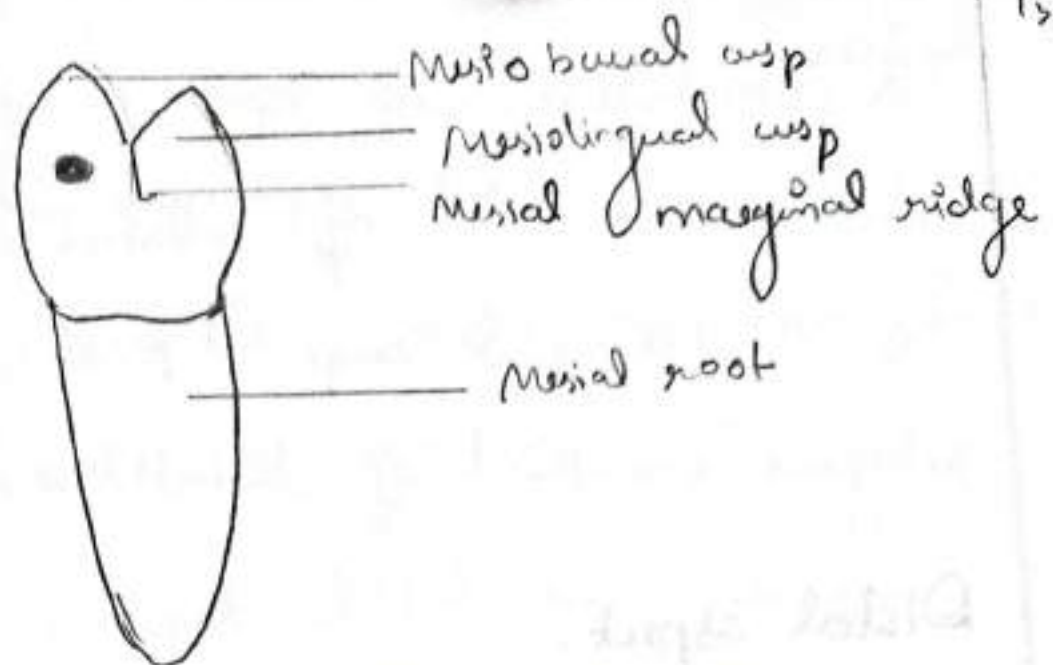 Mesiobuccal cusp
Mesiolingual cusp
Mesial marginal ridge
Mesial root